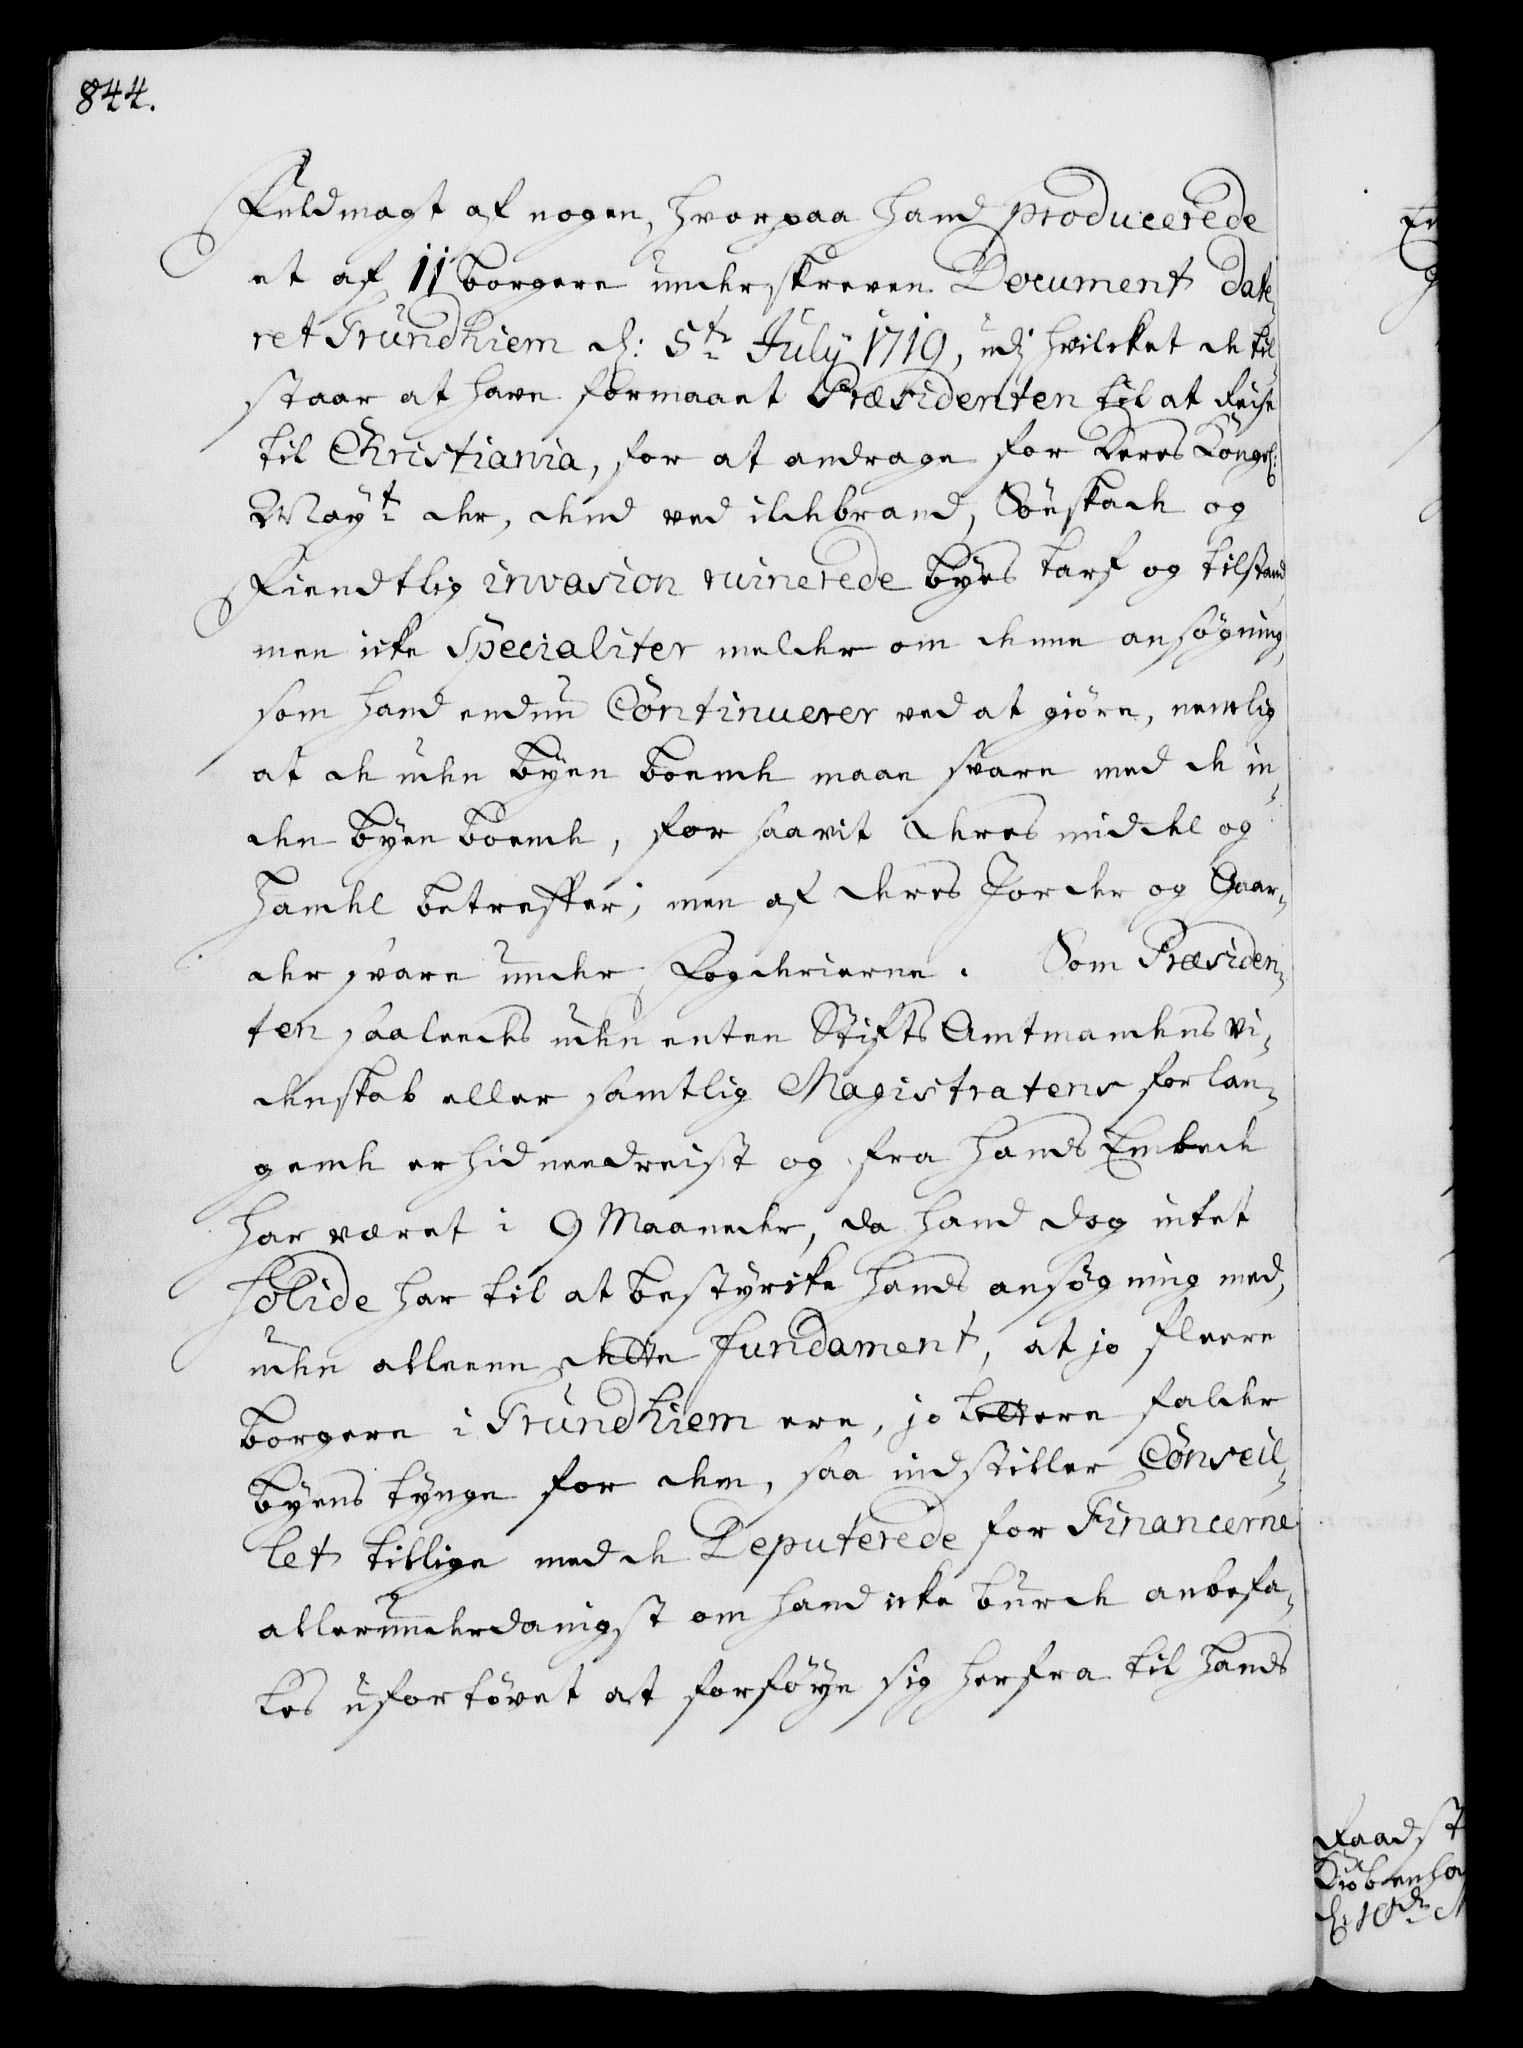 844.
Fuldmagt af nogen, hvorpaa hand producerede
et af 11 borgere underskreven Document date-
ret Trundhiem d: 5te July 1719, udj hvilcket de til-
staar at have formaaet Præsidenten til at Reise
til Christiania, for at andrage for Deres Kongel:
Mayt der, dend ved ildebrand, Söeskade og
Fiendtlig invasion ruinerede byes tarf og tilstand,
men icke specialiter melder om denne ansögning,
som hand endnu Continuerer ved at giöre, nemlig
at de uden byen boende maae svare med de in-
den byen boende, for saavit deres middel og
Handel betreffer; men af deres Jorder og Gaar-
der svare under Fogderierne. Som Præsiden-
ten saaleedes uden enten StiftsAmtmandens vi-
denskab eller samtlig Magistratens forlan-
gende er hid needreist og fra hands Embede
har været i 9 Maaneder, da hand dog intet
solide har til at bestyrcke hands ansögning med,
uden alleene dette fundament, at jo fleere
borgere i Trundhiem ere, jo lettere falder
byens tynge for dem, saa indstiller Conseil-
let tillige med de Deputerede for Financerne
allerunderdanigst om hand icke burde anbefa-
les ufortövet at forföye sig herfra til hands
Raadst
Kiöbenha
d: 10de